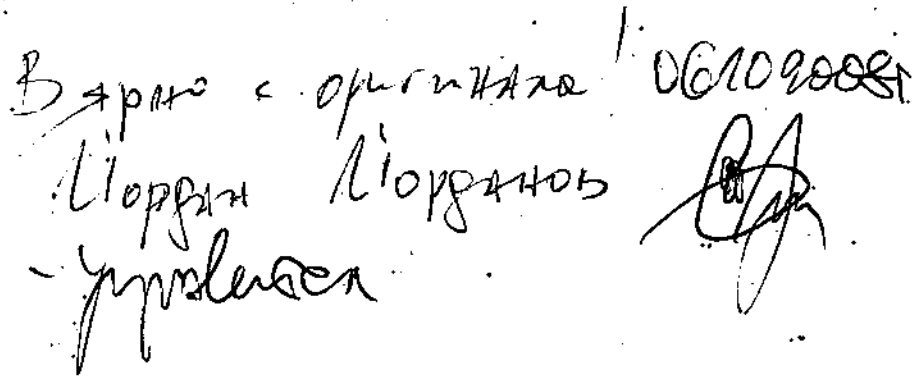 Вярно с оригинала!
Йордан Йорданов
- управител